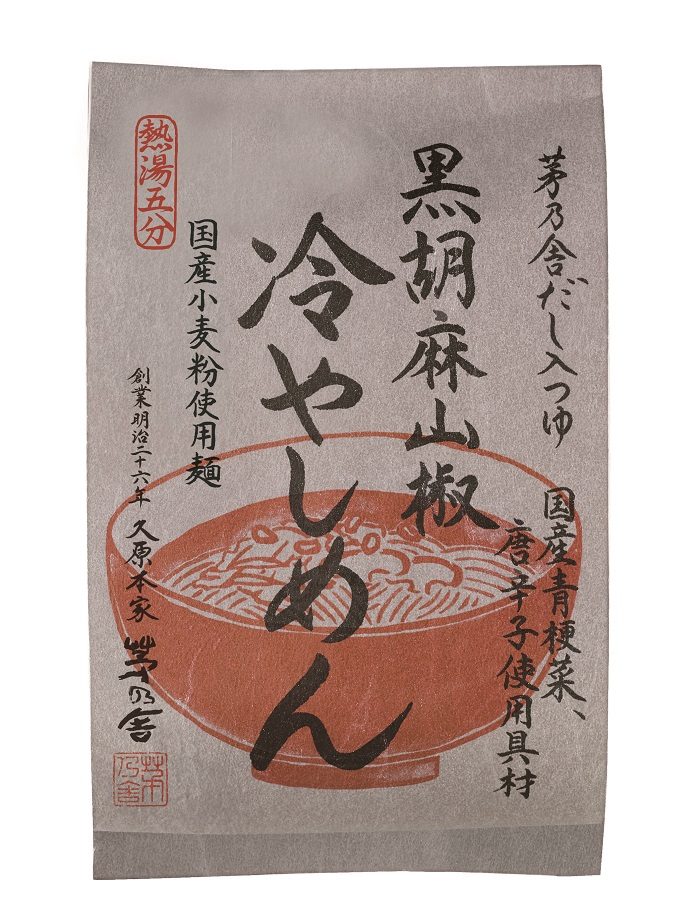 茅乃舎だし入つゆ
国産青梗菜、
唐辛子使用具材
黒胡麻山椒
冷やしめん
国産小麦粉使用麺
熱湯五分
創業明治二十六年 久原本家 茅乃舎
茅乃舎